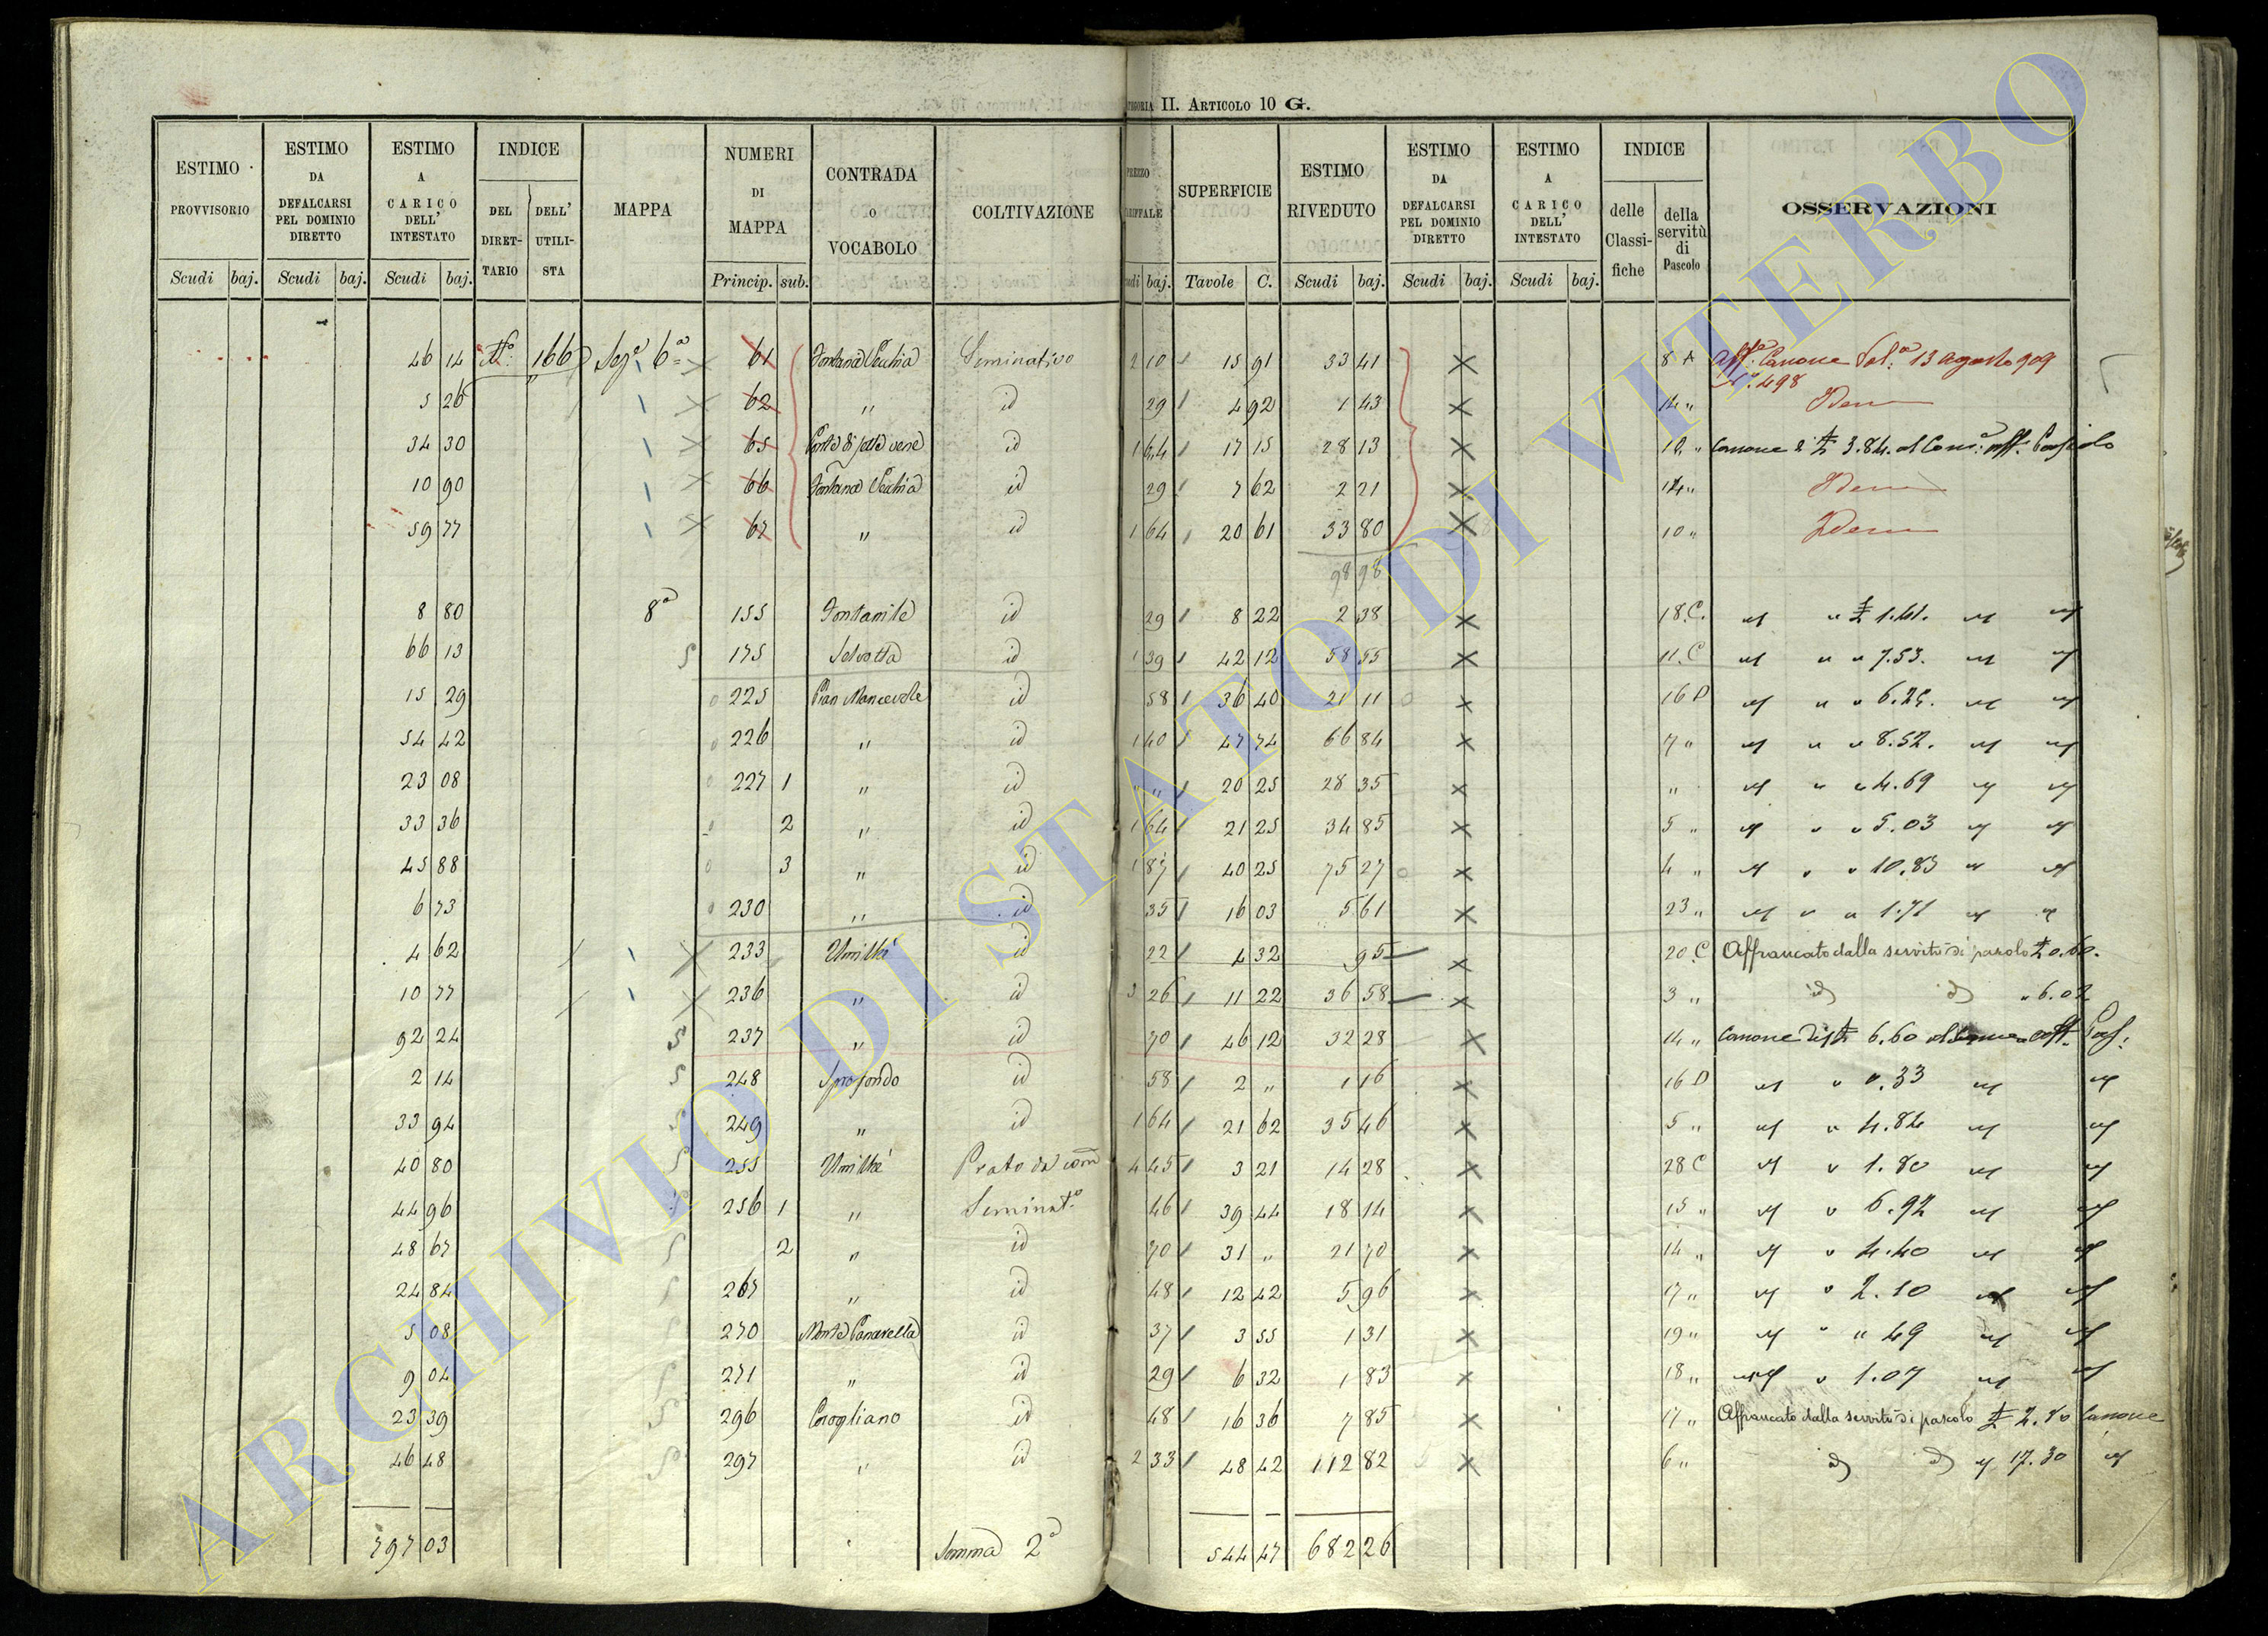 CATEGORIA II. ARTICOLO 10 G.
ESTIMO PROVVISORIO Scudi baj.
ESTIMO DA DEFALCARSI PEL DOMINIO DIRETTO Scudi baj.
ESTIMO A CARICO DELL' INTESTATO Scudi baj.
INDICE DEL DIRETTARIO DELL' UTILISTA
MAPPA
NUMERI DI MAPPA Princip. sub.
CONTRADA o VOCABOLO
COLTIVAZIONE
PREZZO TARIFFALE Scudi baj.
SUPERFICIE Tavole C.
ESTIMO RIVEDUTO Scudi baj.
ESTIMO DA DEFALCARSI PEL DOMINIO DIRETTO Scudi baj.
ESTIMO A CARICO DELL' INTESTATO Scudi baj.
INDICE delle Classifiche della servitù di Pascolo
OSSERVAZIONI
46 14 166 Sez.e 6a 61 Fontana Vecchia Seminativo 2 10 15 91 33 41 × 8 A Aff. Canone Vol. 13 agosto 909
N. 498
5 26 62 " id 29 4 92 1 43 × 14 " Idem
34 30 65 id 1 64 17 15 28 13 × 10 " Canone di £ 3.84. al Com. aff. Pascolo
10 90 66 Fontana Vecchia id 29 7 62 2 21 × 14 " Idem
59 77 67 " id 1 64 20 61 33 80 × 10 " Idem
98 98
8 80 8a 155 Fontanile id 29 8 22 2 38 × 18 C. " " £ 1.41. " "
66 13 175 Selvotta id 1 39 42 12 58 55 × 11. C " " " 7.53. " "
15 29 225 Pian Mancevole id 58 36 40 21 11 × 16 D " " " 6.25. " "
54 42 226 " id 1 40 47 74 66 84 × 7 " " " " 8.52. " "
23 08 227 1 " id " " 20 25 28 35 × " " " " 4.69 " "
33 36 2 " id 1 64 21 25 34 85 × 5 " " " " 5.03 " "
45 88 3 " id 1 87 40 25 75 27 × 4 " " " " 10.83 " "
6 73 230 " id 35 16 03 5 61 × 23 " " " " 1.71 " "
4 62 233 Umiltà id 22 4 32 95 × 20 C Affrancato dalla servitù di pascolo £ 0.60.
10 77 236 " id 3 26 11 22 36 58 × 3 " id id " 6.02
92 24 237 " id 70 46 12 32 28 × 14 " Canone di £ 6.60 al Comune aff. Pas.
2 14 248 Sprofondo id 58 2 " 1 16 × 16 D " " ".33 " "
33 94 249 " id 1 64 21 62 35 46 × 5 " " " 4.84 " "
40 80 255 Umiltà Prato da 4 45 3 21 14 28 × 28 C " " 1.80 " "
44 96 256 1 " Seminat.o 46 39 44 18 14 × 15 " " " 6.92 " "
48 67 2 " id 70 31 " 21 70 × 14 " " " 4.40 " "
24 84 267 " id 48 12 42 5 96 × 17 " " " 2.10 " "
5 08 270 Monte Panarella id 37 3 55 1 31 × 19 " " " " 49 " "
9 04 271 " id 29 6 32 1 83 × 18 " " " 1.07 " "
23 39 296 Corogliano id 48 16 36 7 85 × 17 " Affrancato dalla servitù di pascolo £ 2.80 Canone
46 48 297 " id 2 33 48 42 112 82 × 6 " id id " 17.30 "
797 03 Somma 2a 544 47 682 26
ARCHIVIO DI STATO DI VITERBO